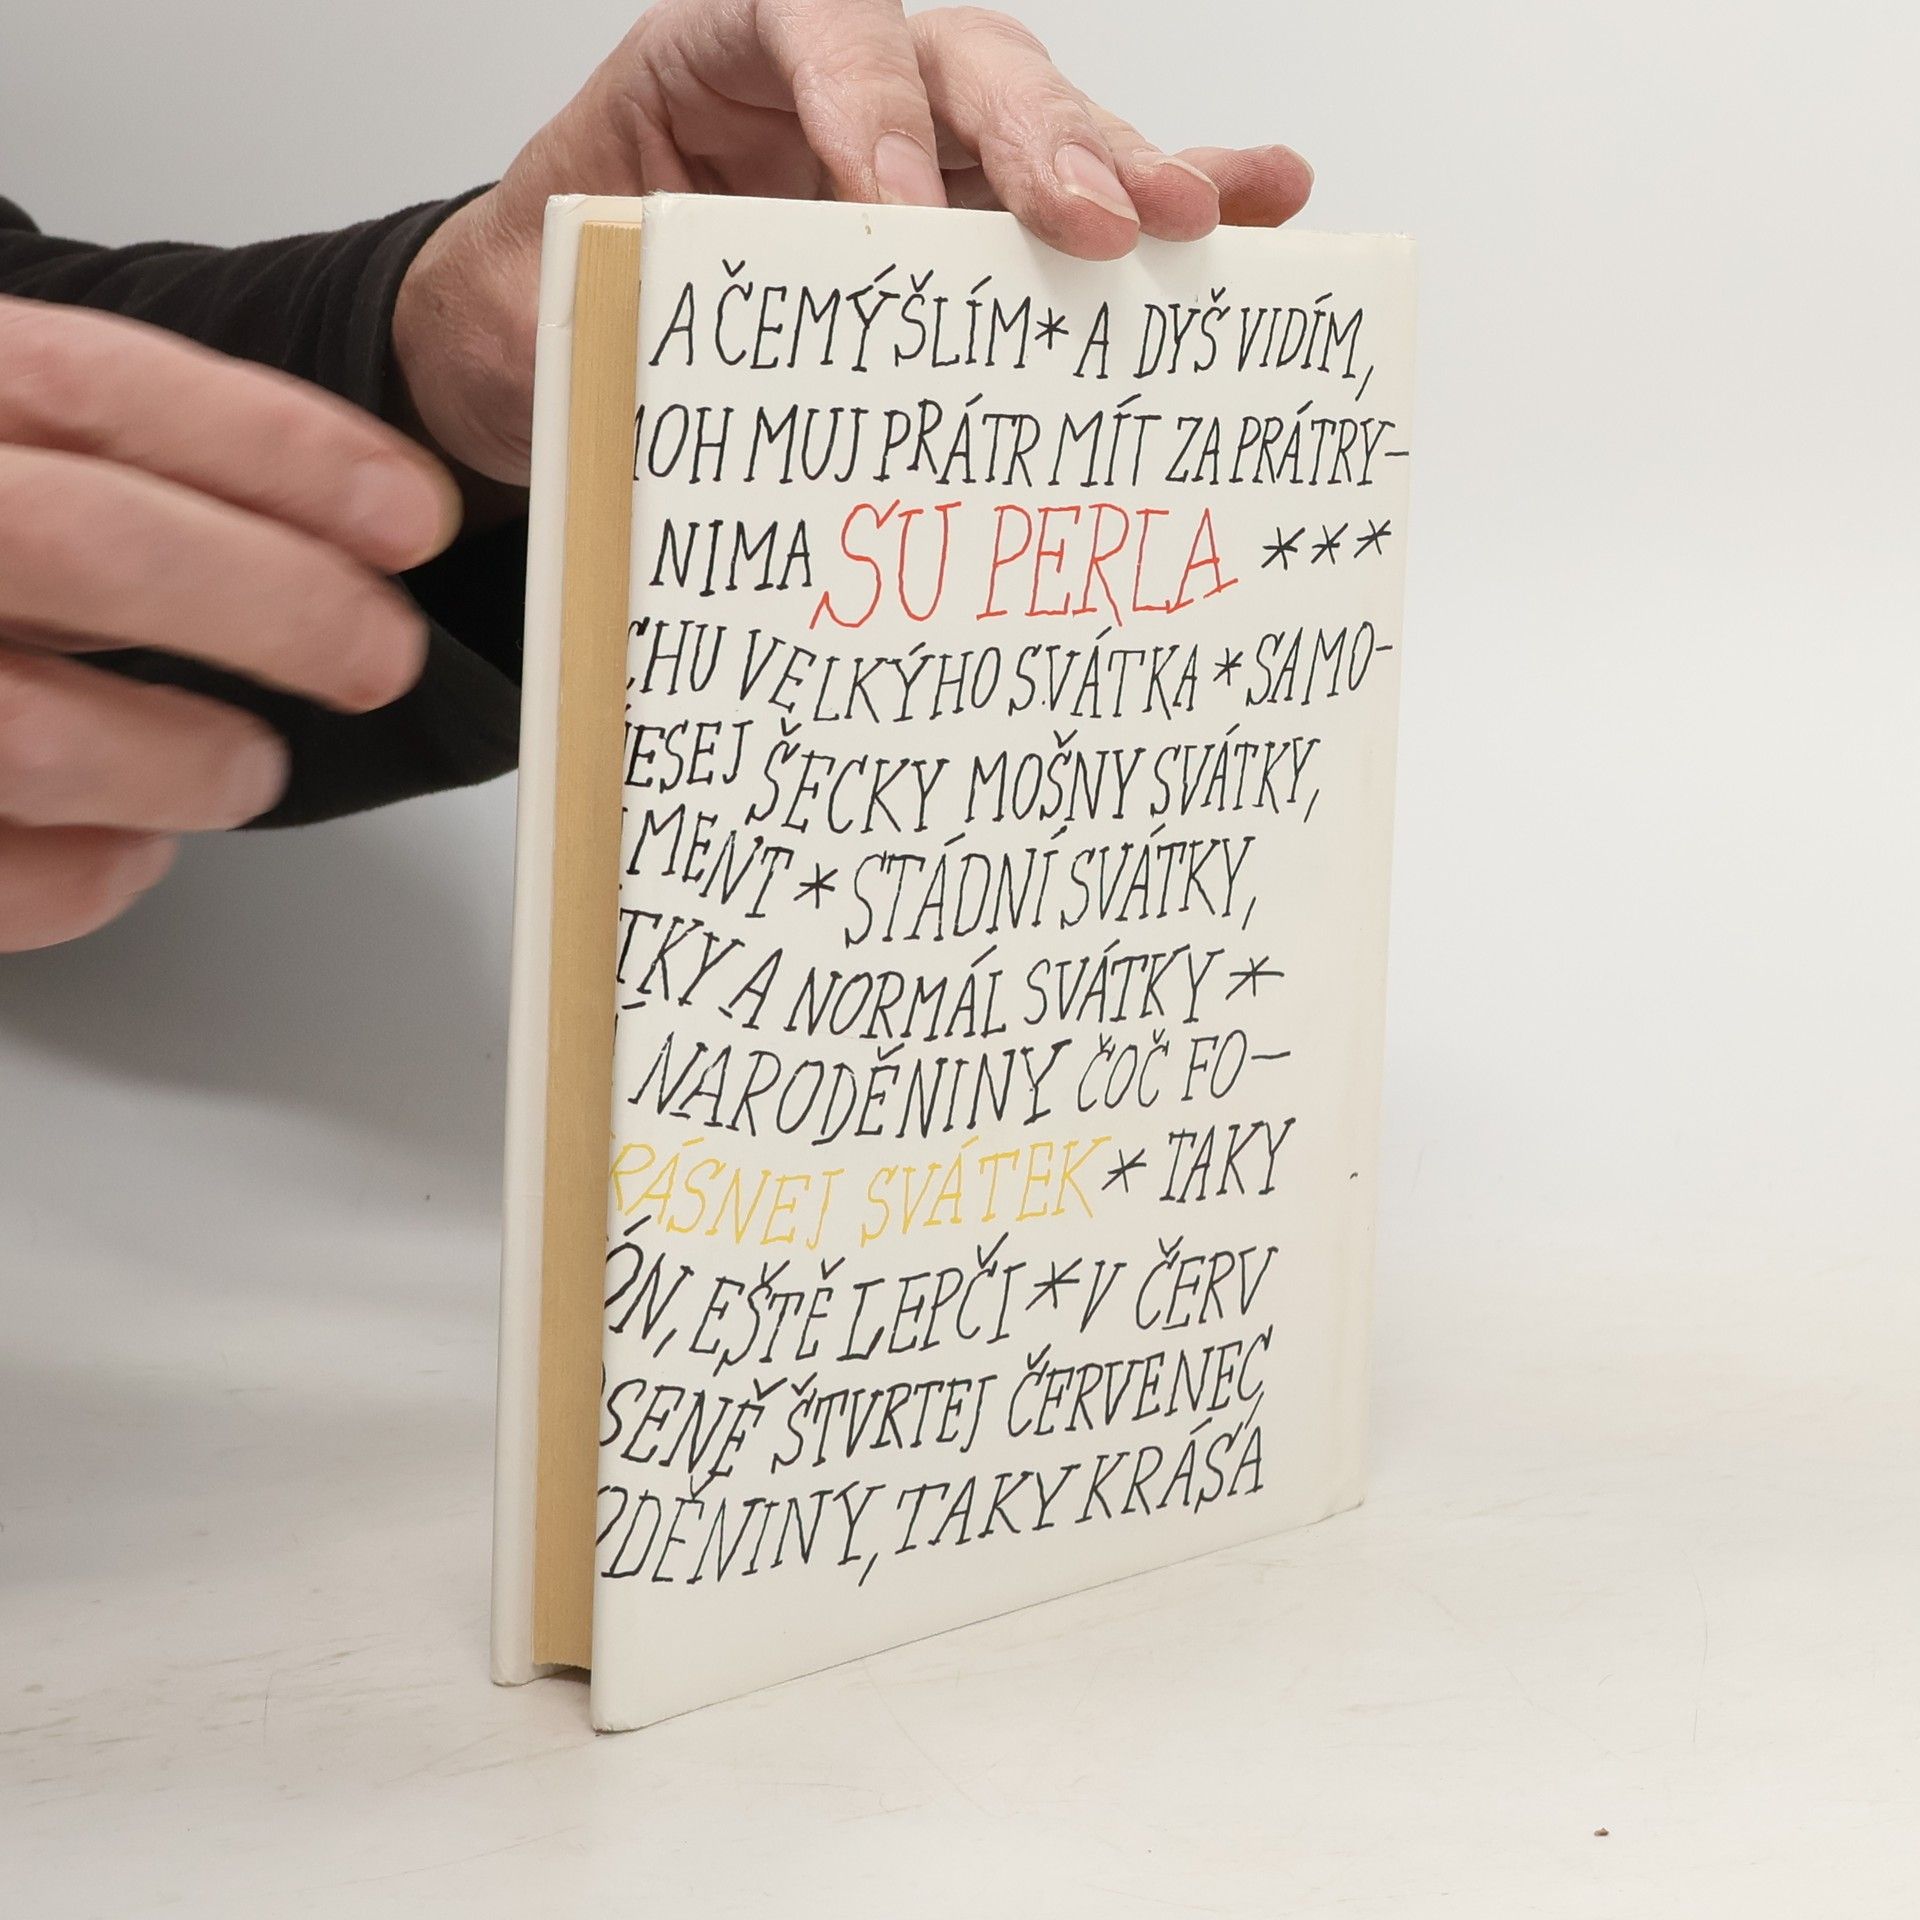 A ČEMÝŠLÍM * A DYŠ VIDÍM,
MOH MUJ PRÁTR MÍT ZA PRÁTRY–
NIMA SU PERLA ***
CHU VELKÝHO SVÁTKA * SAMO-
ESEJ ŠECKY MOŠNY SVÁTKY,
MENT * STÁDNÍ SVÁTKY,
TKY A NORMÁL SVÁTKY *
NARODĚNINY ČOČ FO–
RÁSNEJ SVÁTEK * TAKY
ÓN, EŠTĚ LEPČI * V ČERV
SENĚ ŠTVRTEJ ČERVENEC,
ODĚNINY, TAKY KRÁSA